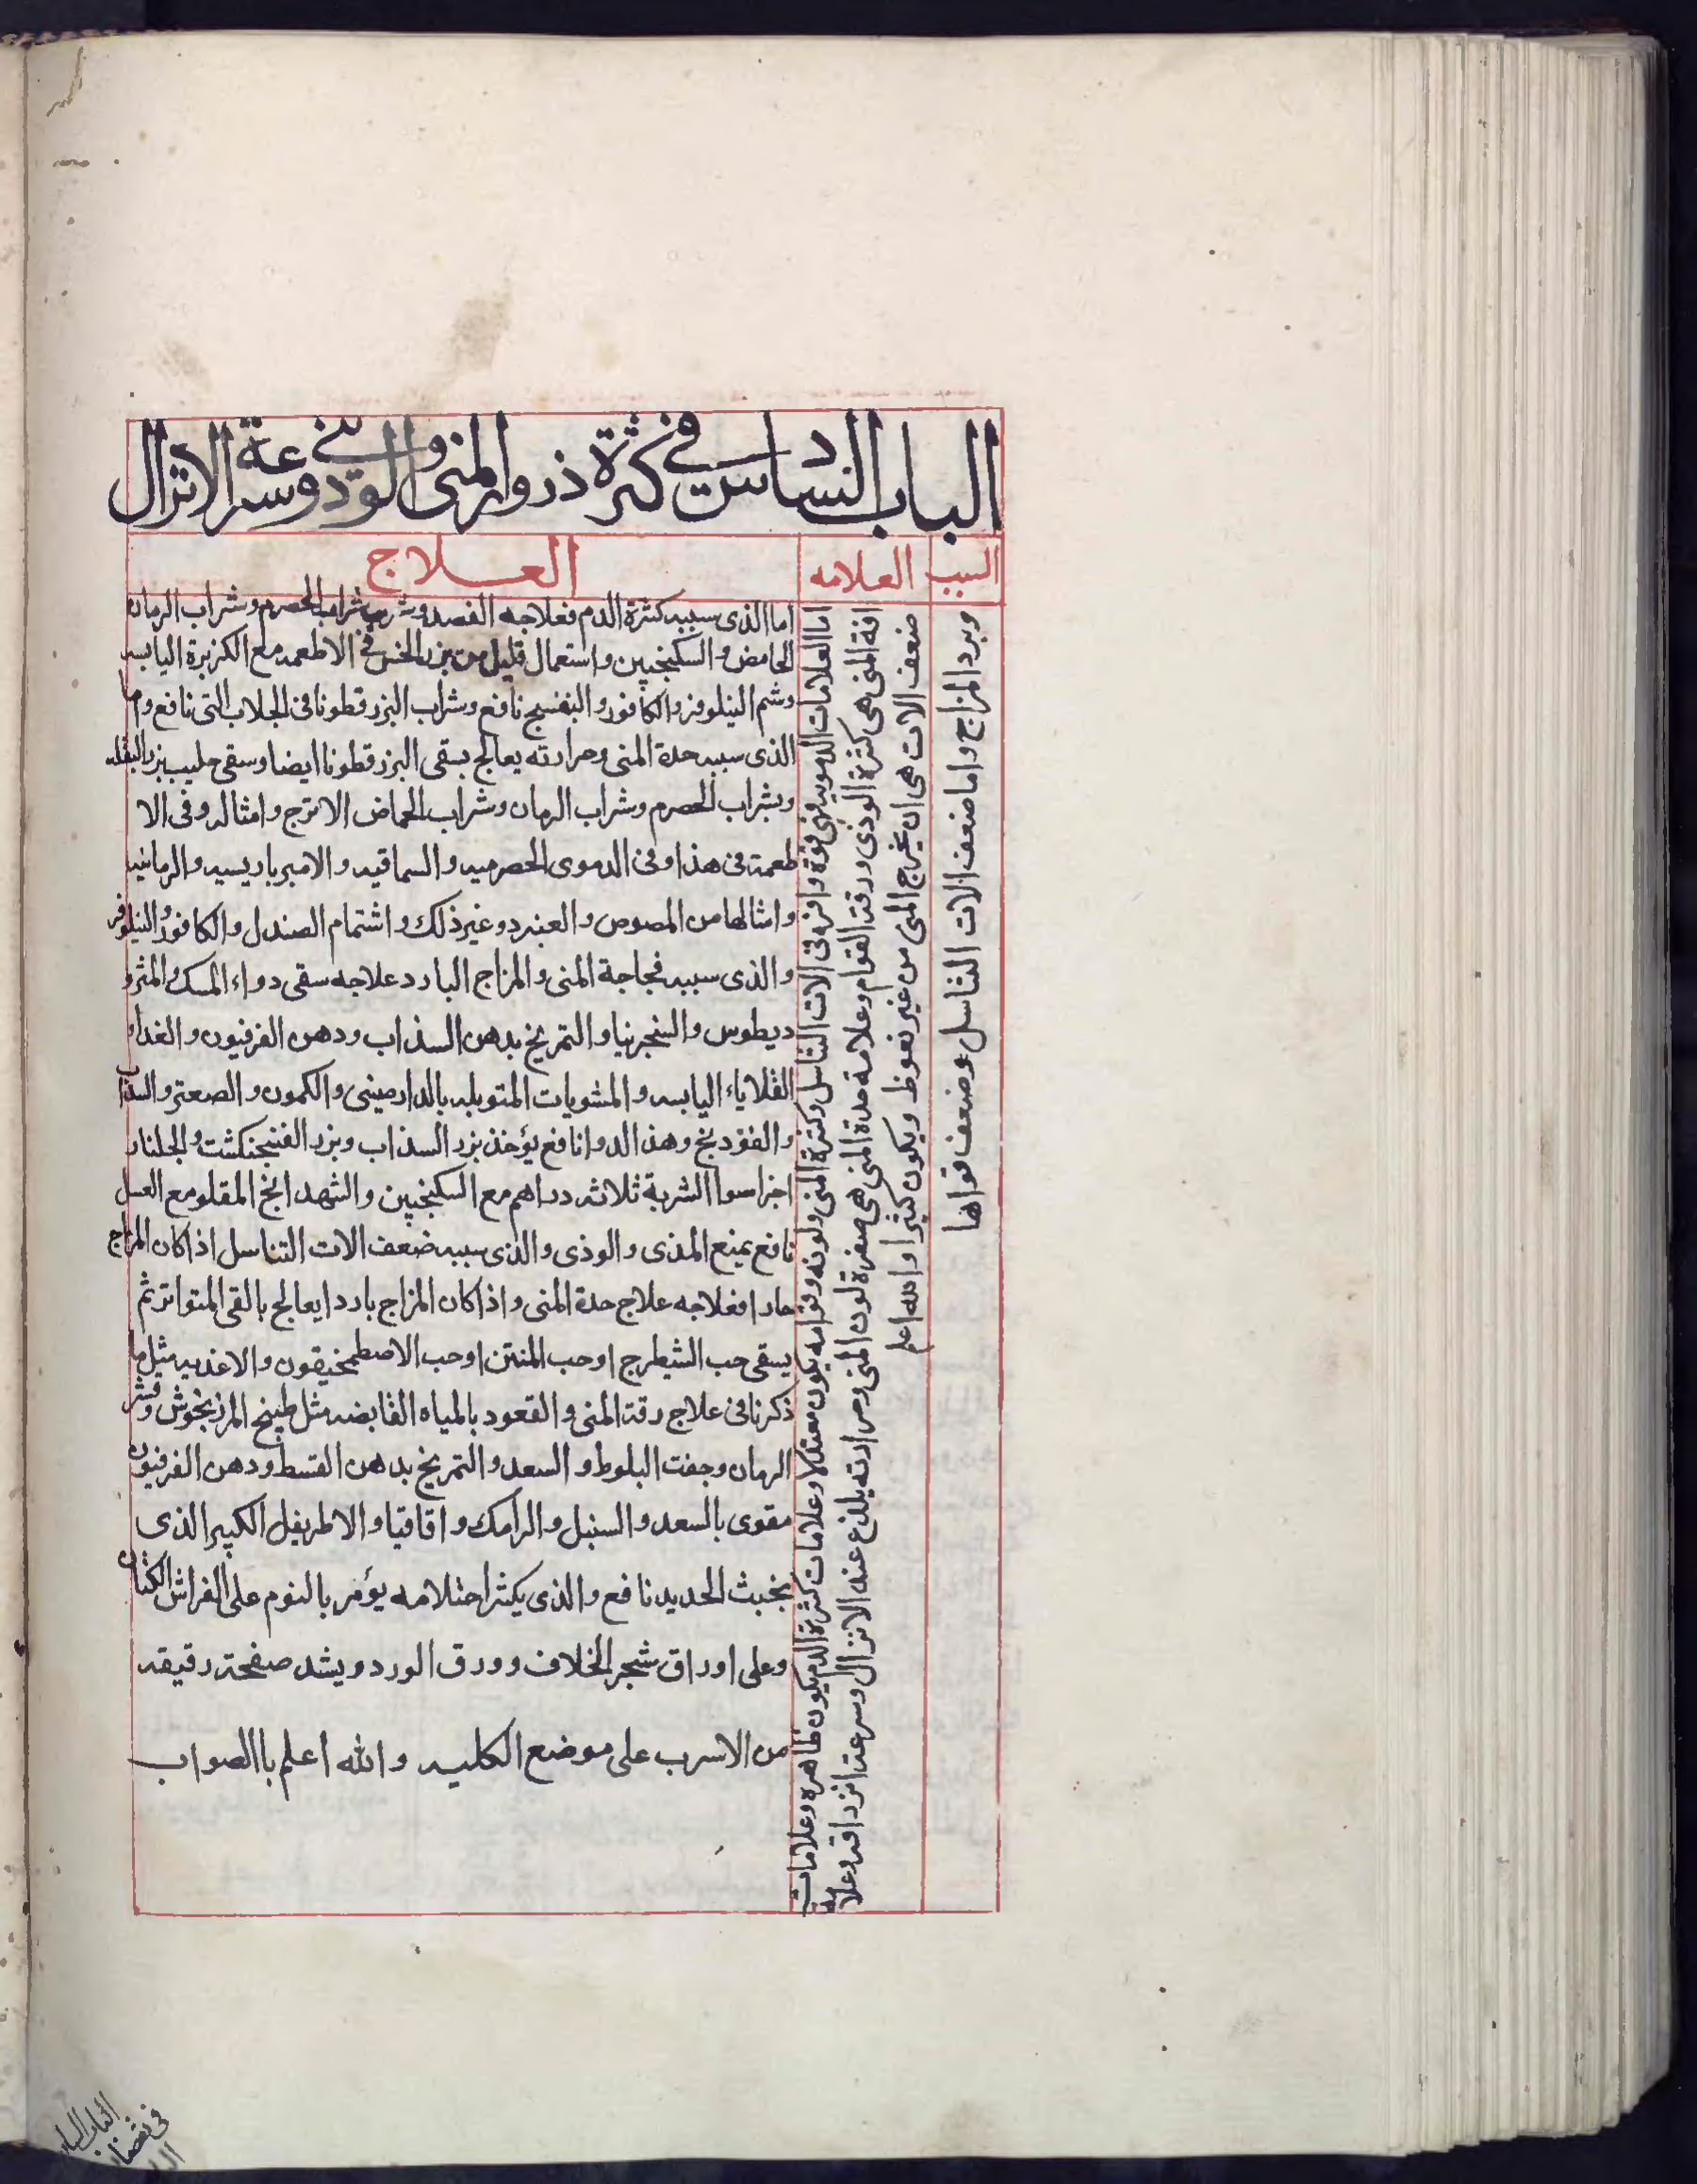 الباب السادس في كثرة درور المنى والودى وسرعة الانزال
السبب
العلامه
العلاج
وبرد المزاج واما ضعف الات التناسل وضعف قواها
اما العلامات الدمويه فهى قوة وافره فى الات التناسل وكثرة المنى ولونه وقوامه يكون معتدلا وعلامات كثرة الدم يكون ظاهره وعلامات
افة المنى هى كثرة الوذى ورقة القوام وعلامة حدة المنى هى صفرة لون المنى وحرارته يلذع عند الانزال وسرعة انزراقه وعلامة
ضعف الالات هى ان يخرج المنى من غير نعوظ ويكون كثيرا والله اعلم
اما الذى سببه كثرة الدم فعلاجه الفصد وشرب شراب الحصرم وشراب الرمان
الحامض والسكنجبين واستعمال قليل من بزر الخس فى الاطعمه مع الكزبرة اليابسه
وشم النيلوفر والكافور والبنفسج نافع وشراب البزر قطونا فى الجلاب التى نافع واما
الذى سببه حدة المنى وحرارته يعالج بسقى البزر قطونا ايضا وسقى حليب بزر البقله
وبشراب الحصرم وشراب الرمان وشراب الحماض الاترج وامثاله وفى الا
طعمة فى هذا وفى الدموى الحصرميه والسماقيه والامبرباريسيه والرمانيه
وامثالها من المصوص والعنبر وغير ذلك واشتمام الصندل والكافور والنيلوفر
والذى سببه فجاجة المنى والمزاج البارد علاجه سقى دواء المسك والمثرو
ديطوس والسنجرنيا والتمريخ بدهن السذاب ودهن الفرفيون والغداو
القلاياء اليابسه والمشويات المتوبله بالدارصينى والكمون والصعتر والسذاب
والفودنج وهذ الدوا نافع يؤخذ بزر السذاب وبزر الفنجنكشت والجلنار
اجزا سوا الشربة ثلاثه دراهم مع السكنجبين والشهدانج المقلو مع العسل
نافع يمنع المذى والوذى والذى سببه ضعف الات التناسل اذا كان المزاج
حارا فعلاجه علاج حدة المنى واذا كان المزاج باردا يعالج بالقى المتواتر ثم
يسقى حب الشيطرج اوحب المنتن اوحب الاصطمخيقون والاغذيه مثل ما
ذكرنا فى علاج رقة المنى والقعود بالمياه القابضه مثل طبيخ المرزنجوش وقشر
الرمان وجفت البلوط و السعد والتمريخ بدهن القسط ودهن الفرفيون
مقوى بالسعد والسنبل والرامك واقاقيا والاطريفل الكبير الذى
بخبث الحديد نافع والذى يكثر احتلامه يؤمر بالنوم على الفراش الكتان
وعلى اوراق شجر الخلاف وورق الورد ويشد صفحة رقيقه
من الاسرب على موضع الكليه والله اعلم باالصواب